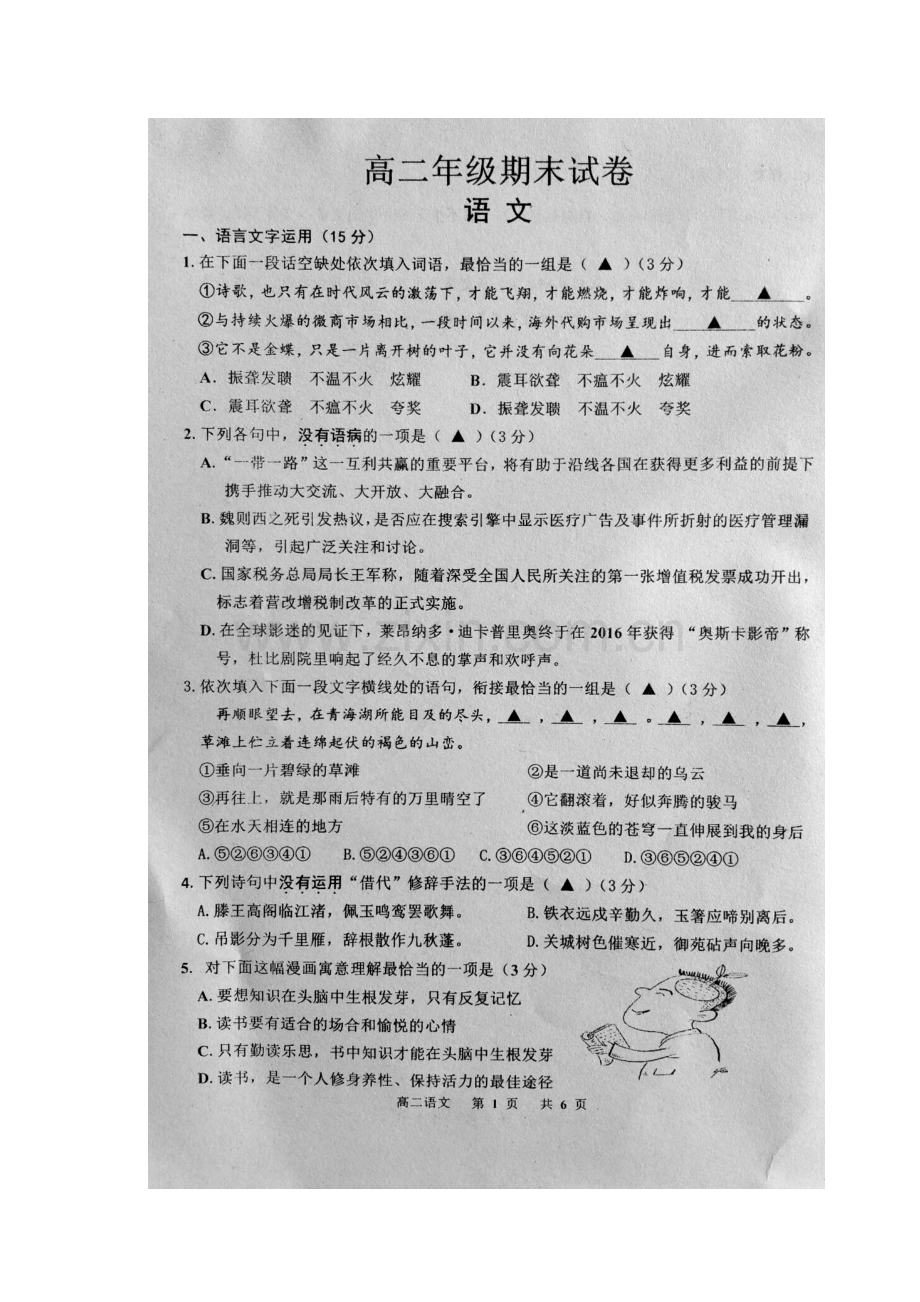 高二年级期末试卷
语 文
一、语言文字运用（15 分）
1. 在下面一段话空缺处依次填入词语，最恰当的一组是（ ▲ ）（3 分）
①诗歌，也只有在时代风云的激荡下，才能飞翔，才能燃烧，才能炸响，才能___▲___。
②与持续火爆的微商市场相比，一段时间以来，海外代购市场呈现出___▲___的状态。
③它不是金蝶，只是一片离开树的叶子，它并没有向花朵___▲___自身，进而索取花粉。
A．振聋发聩　不温不火　炫耀　　B．震耳欲聋　不瘟不火　炫耀
C．震耳欲聋　不瘟不火　夸奖　　D．振聋发聩　不温不火　夸奖
2. 下列各句中，没有语病的一项是（ ▲ ）（3 分）
A.“一带一路”这一互利共赢的重要平台，将有助于沿线各国在获得更多利益的前提下
携手推动大交流、大开放、大融合。
B. 魏则西之死引发热议，是否应在搜索引擎中显示医疗广告及事件所折射的医疗管理漏
洞等，引起广泛关注和讨论。
C. 国家税务总局局长王军称，随着深受全国人民所关注的第一张增值税发票成功开出，
标志着营改增税制改革的正式实施。
D. 在全球影迷的见证下，莱昂纳多·迪卡普里奥终于在 2016 年获得 “奥斯卡影帝”称
号，杜比剧院里响起了经久不息的掌声和欢呼声。
3. 依次填入下面一段文字横线处的语句，衔接最恰当的一组是（ ▲ ）（3 分）
再顺眼望去，在青海湖所能目及的尽头，_▲_，_▲_，_▲_。_▲_，_▲_，_▲_，
草滩上伫立着连绵起伏的褐色的山峦。
①垂向一片碧绿的草滩　　②是一道尚未退却的乌云
③再往上，就是那雨后特有的万里晴空了　　④它翻滚着，好似奔腾的骏马
⑤在水天相连的地方　　⑥这淡蓝色的苍穹一直伸展到我的身后
A.⑤②⑥③④①　　B.⑤②④③⑥①　　C.③⑥④⑤②①　　D.③⑥⑤②④①
4. 下列诗句中没有运用“借代”修辞手法的一项是（ ▲ ）（3 分）
A. 滕王高阁临江渚，佩玉鸣鸾罢歌舞。　　B. 铁衣远戍辛勤久，玉箸应啼别离后。
C. 吊影分为千里雁，辞根散作九秋蓬。　　D. 关城树色催寒近，御苑砧声向晚多。
5. 对下面这幅漫画寓意理解最恰当的一项是（3 分）
A. 要想知识在头脑中生根发芽，只有反复记忆
B. 读书要有适合的场合和愉悦的心情
C. 只有勤读乐思，书中知识才能在头脑中生根发芽
D. 读书，是一个人修身养性、保持活力的最佳途径
高二语文　第 1 页　共 6 页